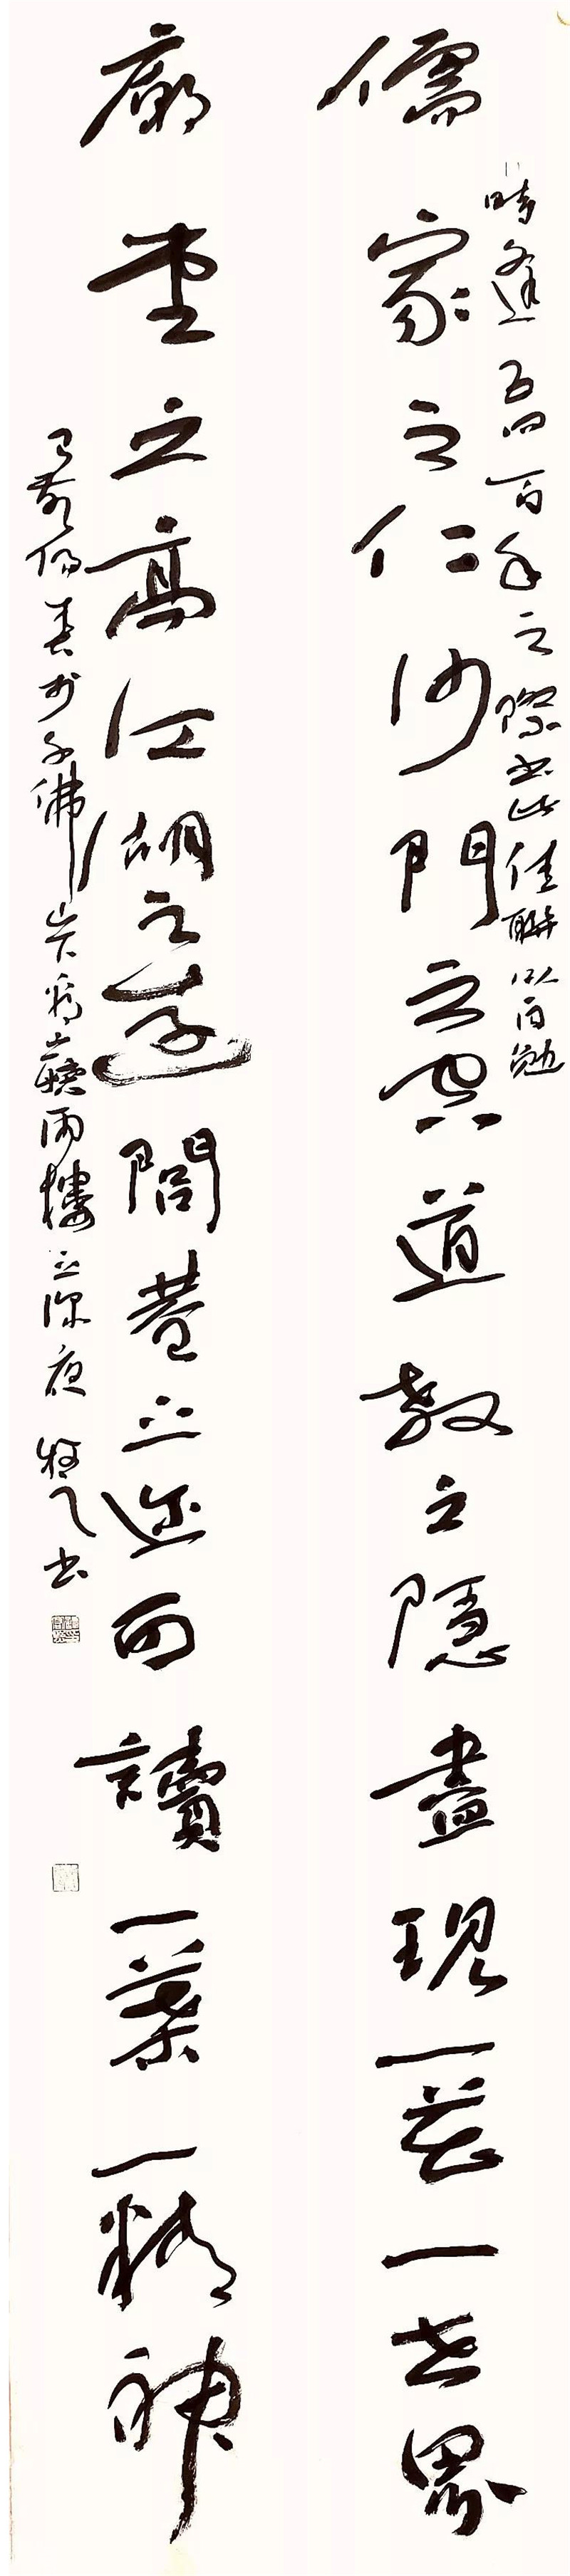 儒家之仁沙門之空道教之隱盡現一花一世界
時逢五四百年之際書此佳聯以自勉
廟堂之高江湖之遠閭巷之迩可讀一葉一精神
己亥仲春於千佛山下 聽雨樓之深夜 書